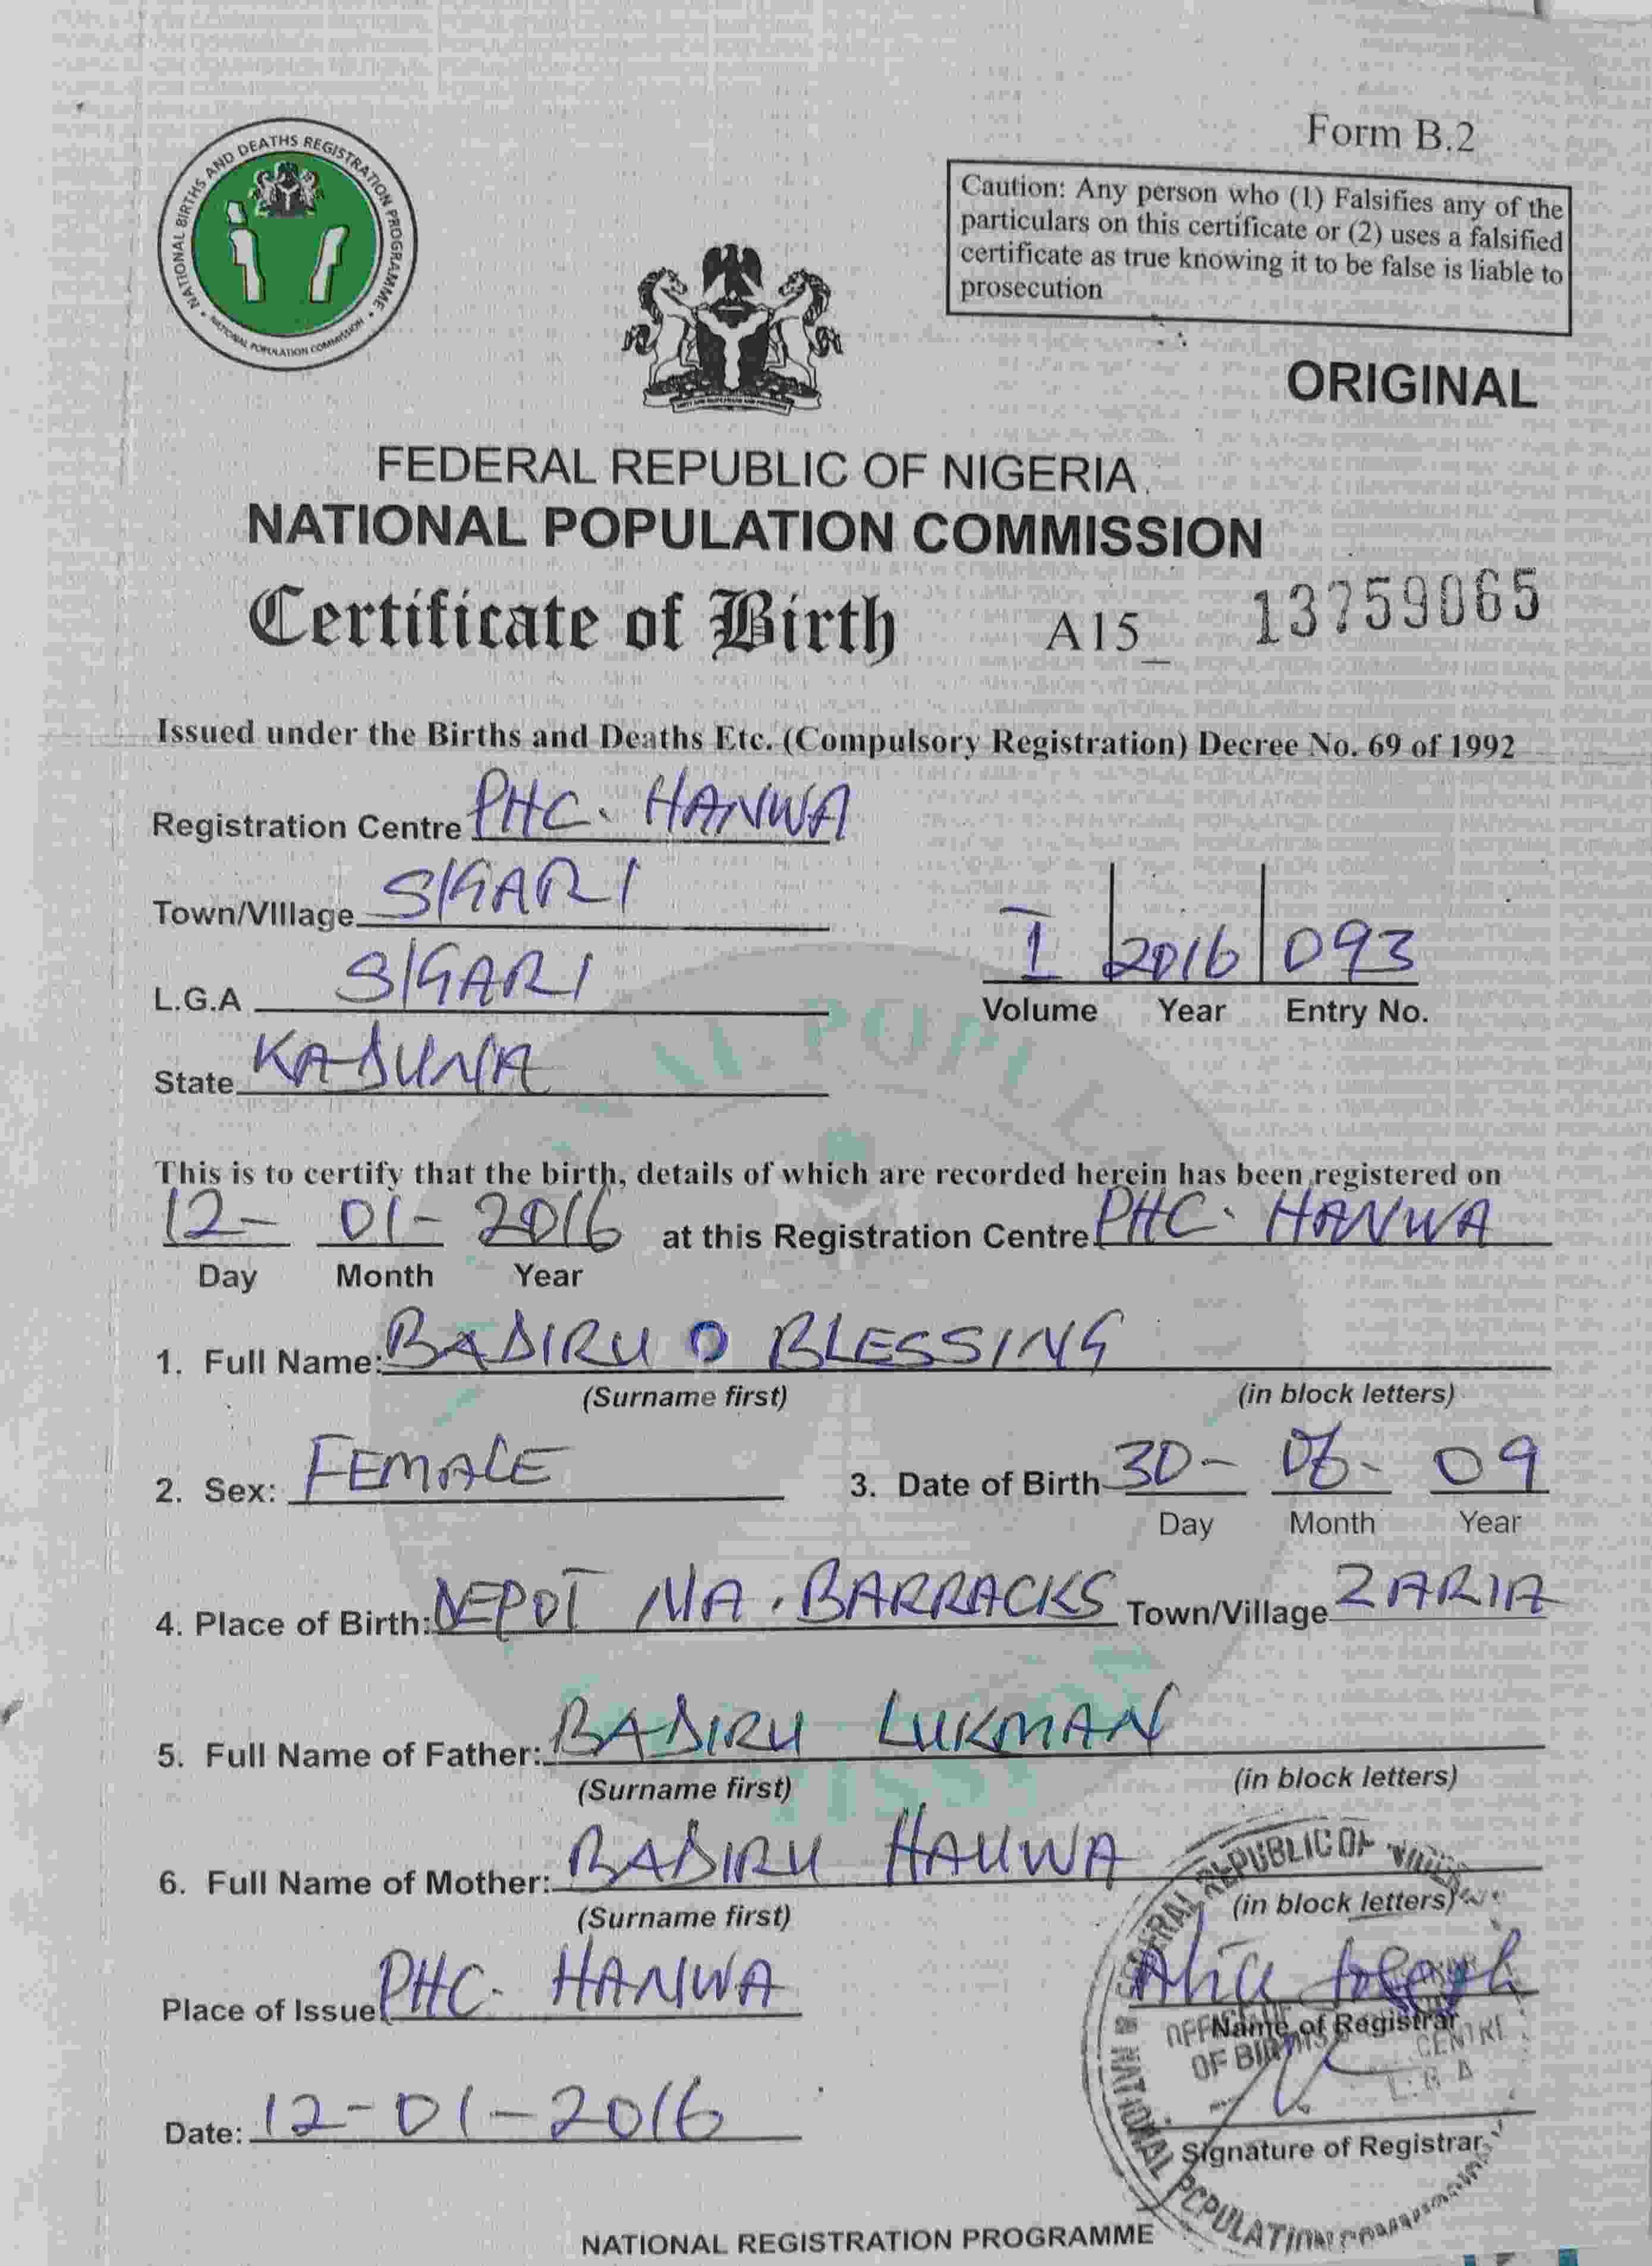 NATIONAL BIRTHS AND DEATHS REGISTRATION PROGRAMME
NATIONAL POPULATION COMMISSION
Form B.2
Caution: Any person who (1) Falsifies any of the
particulars on this certificate or (2) uses a falsified
certificate as true knowing it to be false is liable to
prosecution
ORIGINAL
FEDERAL REPUBLIC OF NIGERIA
NATIONAL POPULATION COMMISSION
Certificate of Birth A15_ 13759065
Issued under the Births and Deaths Etc. (Compulsory Registration) Decree No. 69 of 1992
Registration Centre PHC. HANWA
Town/Village S/GARI
L.G.A S/GARI
I 2016 093
Volume Year Entry No.
State KADUNA
This is to certify that the birth, details of which are recorded herein has been registered on
12- 01- 2016 at this Registration Centre PHC. HANWA
Day Month Year
1. Full Name: BADIRU O BLESSING
(Surname first) (in block letters)
2. Sex: FEMALE 3. Date of Birth 30- 09
Day Month Year
4. Place of Birth: DEPOT NA. BARRACKS Town/Village ZARIA
5. Full Name of Father: BADIRU LUKMAN
(Surname first) (in block letters)
6. Full Name of Mother: BADIRU HAUWA
(Surname first) (in block letters)
Place of Issue PHC. HANWA
Alice Joseph
Name of Registrar
Date: 12-01-2016
Signature of Registrar
NATIONAL REGISTRATION PROGRAMME